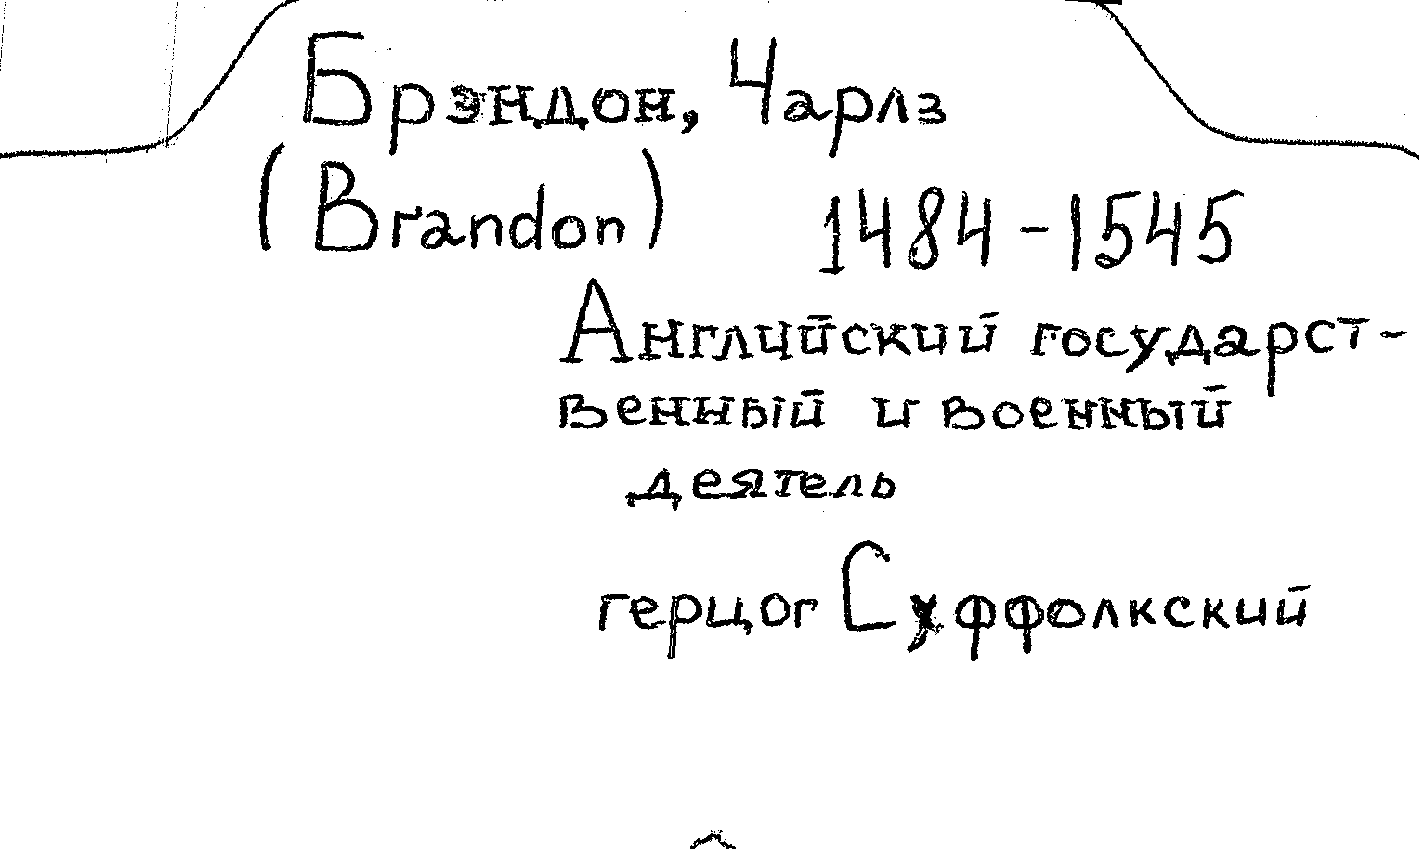 Брэндон, Чарлз
(Brandon) 1484-1545
Английский государст-
венный и военный
деятель
герцог Суффолкский